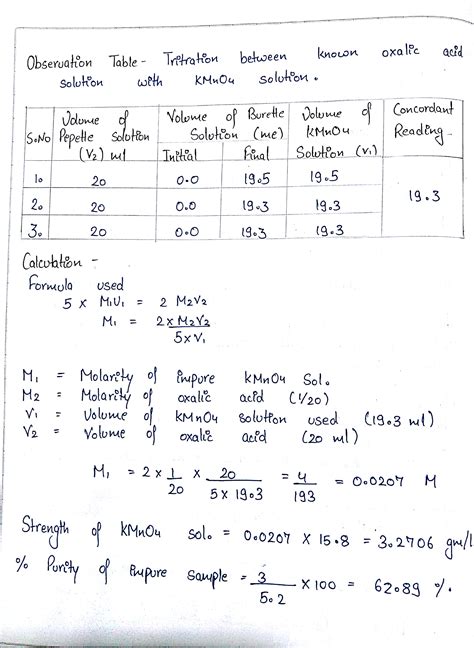 Observation Table - Tritration between known oxalic acid
solution with KMnO4 solution.
S.No Volume of Pepette solution (V2) ml Volume of Burette Solution (me) Volume of KMnO4 Solution (V1) Concordant Reading
Initial Final
1. 20 0.0 19.5 19.5
2. 20 0.0 19.3 19.3 19.3
3. 20 0.0 19.3 19.3
Calculation -
Formula used
5 x M1V1 = 2 M2V2
M1 = 2 x M2V2 / 5xV1
M1 = Molarity of impure KMnO4 Sol.
M2 = Molarity of oxalic acid (1/20)
V1 = Volume of KMnO4 solution used (19.3 ml)
V2 = Volume of oxalic acid (20 ml)
M1 = 2 x 1/20 x 20/5 x 19.3 = 4/193 = 0.0207 M
Strength of KMnO4 sol. = 0.0207 x 15.8 = 3.2706 gm/l
% Purity of impure sample = 3/5.2 x 100 = 62.89 %.